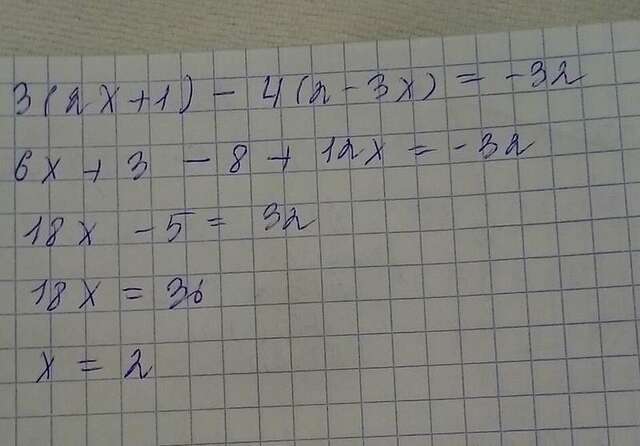 3(2x+1) - 4(2-3x) = -32
6x + 3 - 8 + 12x = -32
18x - 5 = 32
18x = 36
x = 2